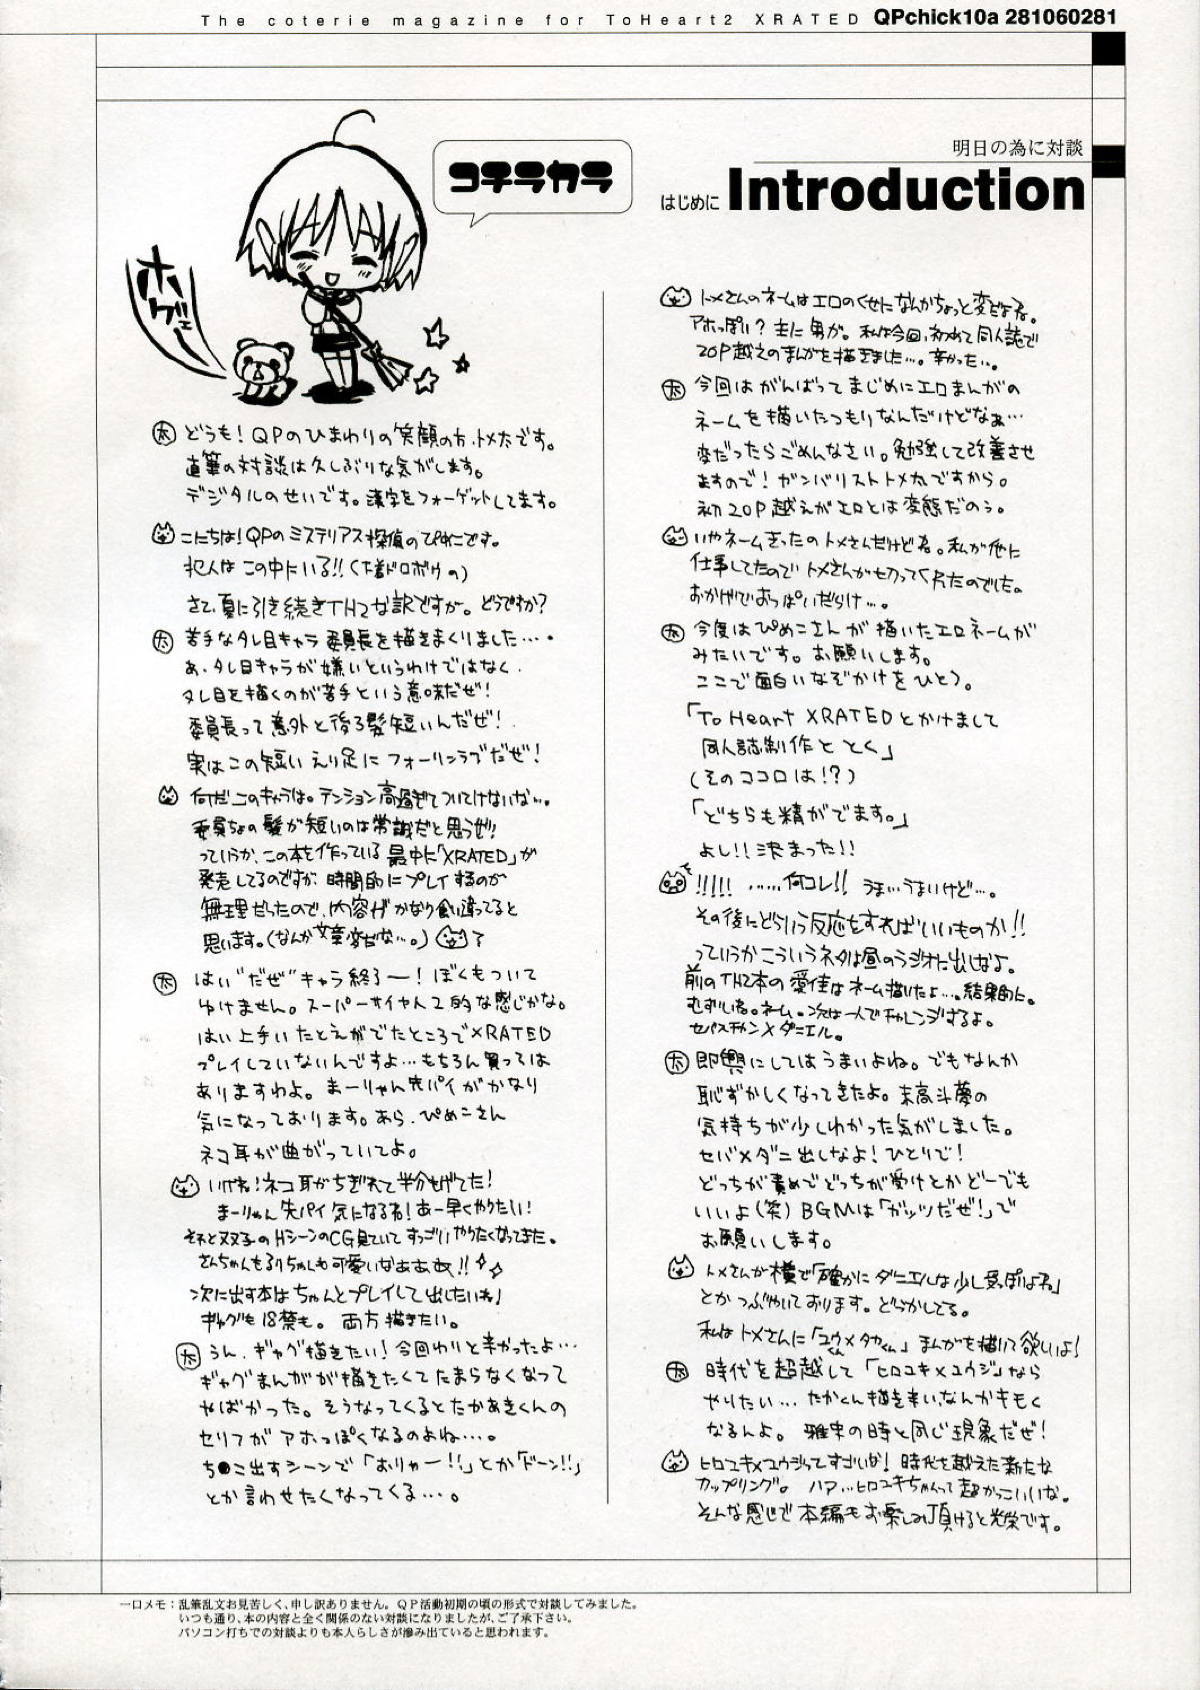 The coterie magazine for ToHeart2 XRATED QPchick10a 281060281
明日の為に対談
はじめに Introduction
コチラカラ
ホゲェー
太 どうも!QPのひまわりの笑顔の方、トメ太です。
直筆の対談は久しぶりな気がします。
デジタルのせいです。漢字をフォーゲットしてます。
こにちは!QPのミステリアス探偵のぴめこです。
犯人はこの中にいる!!(下着ドロボウの)
さて、夏に引き続きTH2な訳ですが。どうですか?
太 苦手なタレ目キャラ委員長を描きまくりました・・・・
あ、タレ目キャラが嫌いというわけではなく、
タレ目を描くのが苦手という意味だぜ!
委員長って意外と後ろ髪短いんだぜ!
実はこの短いえり足にフォーリンラブだぜ!
何だこのキャラは。テンション高過ぎてついてけないな…。
委員ちょの髪が短いのは常識だと思うぜ!
っていうか、この本を作っている最中に「XRATED」が
発売してるのですが、時間的にプレイするのが
無理だったので、内容がかなり食い違ってると
思います。(なんか文章変だな…。)
太 はい"だぜ"キャラ終了ー!ぼくもついて
ゆけません。スーパーサイヤ人2的な感じかな。
はい上手いたとえがでたところでXRATED
プレイしていないんですよ…もちろん買っては
ありますわよ。まーりゃん先パイがかなり
気になっております。あら、ぴめこさん
ネコ耳が曲がっていてよ。
いけね!ネコ耳がちぎれて半分もげてた!
まーりゃん先パイ気になるね!あー早くやりたい!
それと双子のHシーンのCG見ていてすっごいやりたくなってきた。
さんちゃんもるりちゃんも可愛いなぁぁぁ!!
次に出す本はちゃんとプレイして出したいね!
ギャグも18禁も。両方描きたい。
太 うん、ギャグ描きたい!今回わりと辛かったよ…
ギャグまんがが描きたくてたまらなくなって
やばかった。そうなってくるとたかあきくんの
セリフがアホっぽくなるのよね…。
ち●こ出すシーンで「おりゃー!!」とか「ドーン!!」
とか言わせたくなってくる…。
トメさんのネームはエロのくせになんかちょっと変だよね。
アホっぽい?主に男が。私は今回、初めて同人誌で
20P越えのまんがを描きました…。辛かった…。
太 今回はがんばってまじめにエロまんがの
ネームを描いたつもりなんだけどなぁ…
変だったらごめんなさい。勉強して改善させ
ますので!ガンバリストトメ太ですから。
初20P越えがエロとは変態だのぅ。
いやネームきったのトメさんだけどね。私が他に
仕事してたのでトメさんが切ってくれたのでした。
おかげでおっぱいだらけ…。
太 今度はぴめこさんが描いたエロネームが
みたいです。お願いします。
ここで面白いなぞかけをひとつ。
「To Heart XRATEDとかけまして
同人誌制作ととく」
(そのココロは!?)
「どちらも精がでます。」
よし!!決まった!!
!!!!! ……何コレ!! うま…うまいけど…。
その後にどういう反応をすればいいものか!!
っていうかこういうネタは昼のラジオに出しなよ。
前のTH2本の愛佳はネーム描いたよ…。結果的に。
むずいね。ネーム。次は一人でチャレンジするよ。
セバスチャン×ダニエル。
太 即興にしてはうまいよね。でもなんか
恥ずかしくなってきたよ。末高斗夢の
気持ちが少しわかった気がしました。
セバ×ダニ出しなよ!ひとりで!
どっちが責めでどっちが受けとかどーでも
いいよ(笑)BGMは「ガッツだぜ!」で
お願いします。
トメさんが横で「確かにダニエルは少し受っぽいよね」
とかつぶやいております。どうかしてる。
私はトメさんに「ユウくん×タカくん」まんがを描いて欲しいよ!
太 時代を超越して「ヒロユキ×ユウジ」なら
やりたい…たかくん描き辛い、なんかキモく
なるんよ。雅史の時と同じ現象だぜ!
ヒロユキ×ユウジってすごいな!時代を越えた新たな
カップリング。ハァ…ヒロユキちゃんって超かっこいいな。
そんな感じで本編もお楽しみ頂けると光栄です。
一口メモ:乱筆乱文お見苦しく、申し訳ありません。QP活動初期の頃の形式で対談してみました。
いつも通り、本の内容と全く関係のない対談になりましたが、ご了承下さい。
パソコン打ちでの対談よりも本人らしさが滲み出ていると思われます。